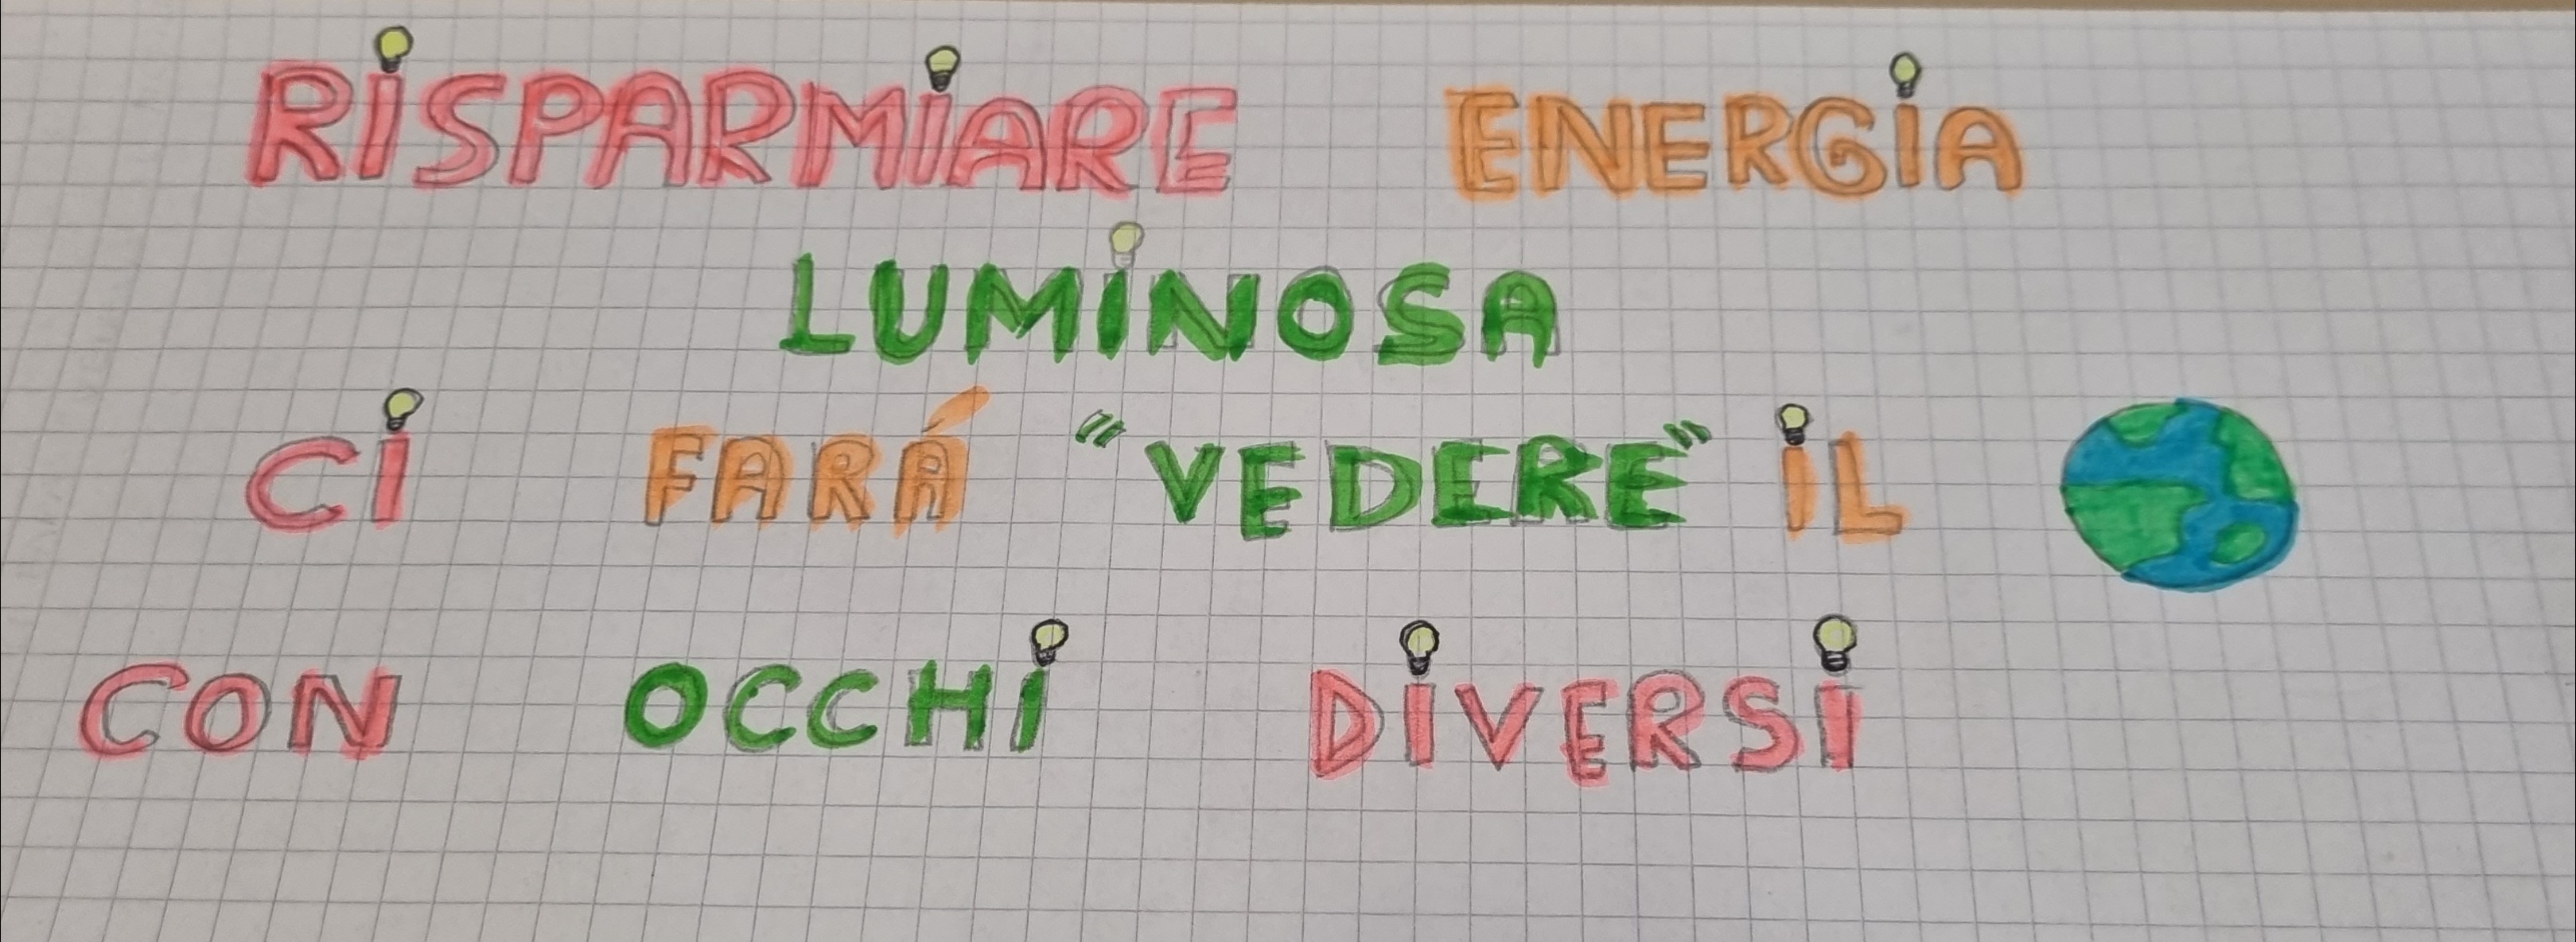 RISPARMIARE ENERGIA
LUMINOSA
CI FARÁ "VEDERE" IL
CON OCCHI DIVERSI